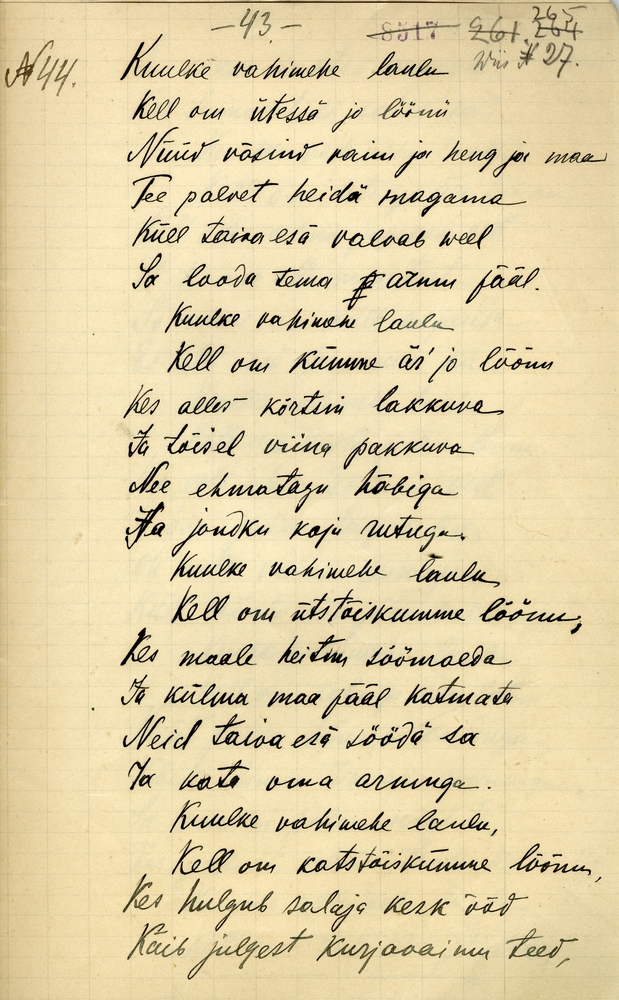 —43—
8517 261. 264 265
Wiis № 27.
№ 44.
Kuulke vahimehe laulu
Kell om ütessä jo löönü
Nüüd väsind vaim ja heng ja maa
Tee palvet heidä magama
Küll taiva esä valvab weel
Sa looda tema armu pääl.
Kuulke vahimehe laulu
Kell om kümme är' jo löönu
Kes alles körtsin lakkuva
Ja töisel viina pakkuva
Nee ehmatagu häbiga
Ja joudku koju rutuga.
Kuulke vahimehe laulu
Kell om ütstöiskumme löönu,
Kes maale heitnu söömaeda
Ja külma maa pääl katmata
Neid taiva esä söödä sa
Ja kata oma armuga.
Kuulke vahimehe laulu,
Kell om katstöiskümme löönu,
Kes hulgub salaja kesk ööd
Käib julgest kurjavaimu teed,